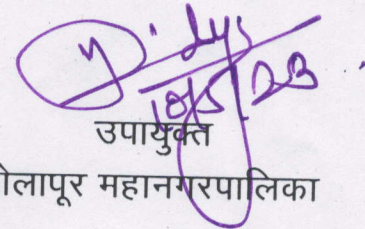 10/5/23
उपायुक्त
ोलापूर महानगरपालिका